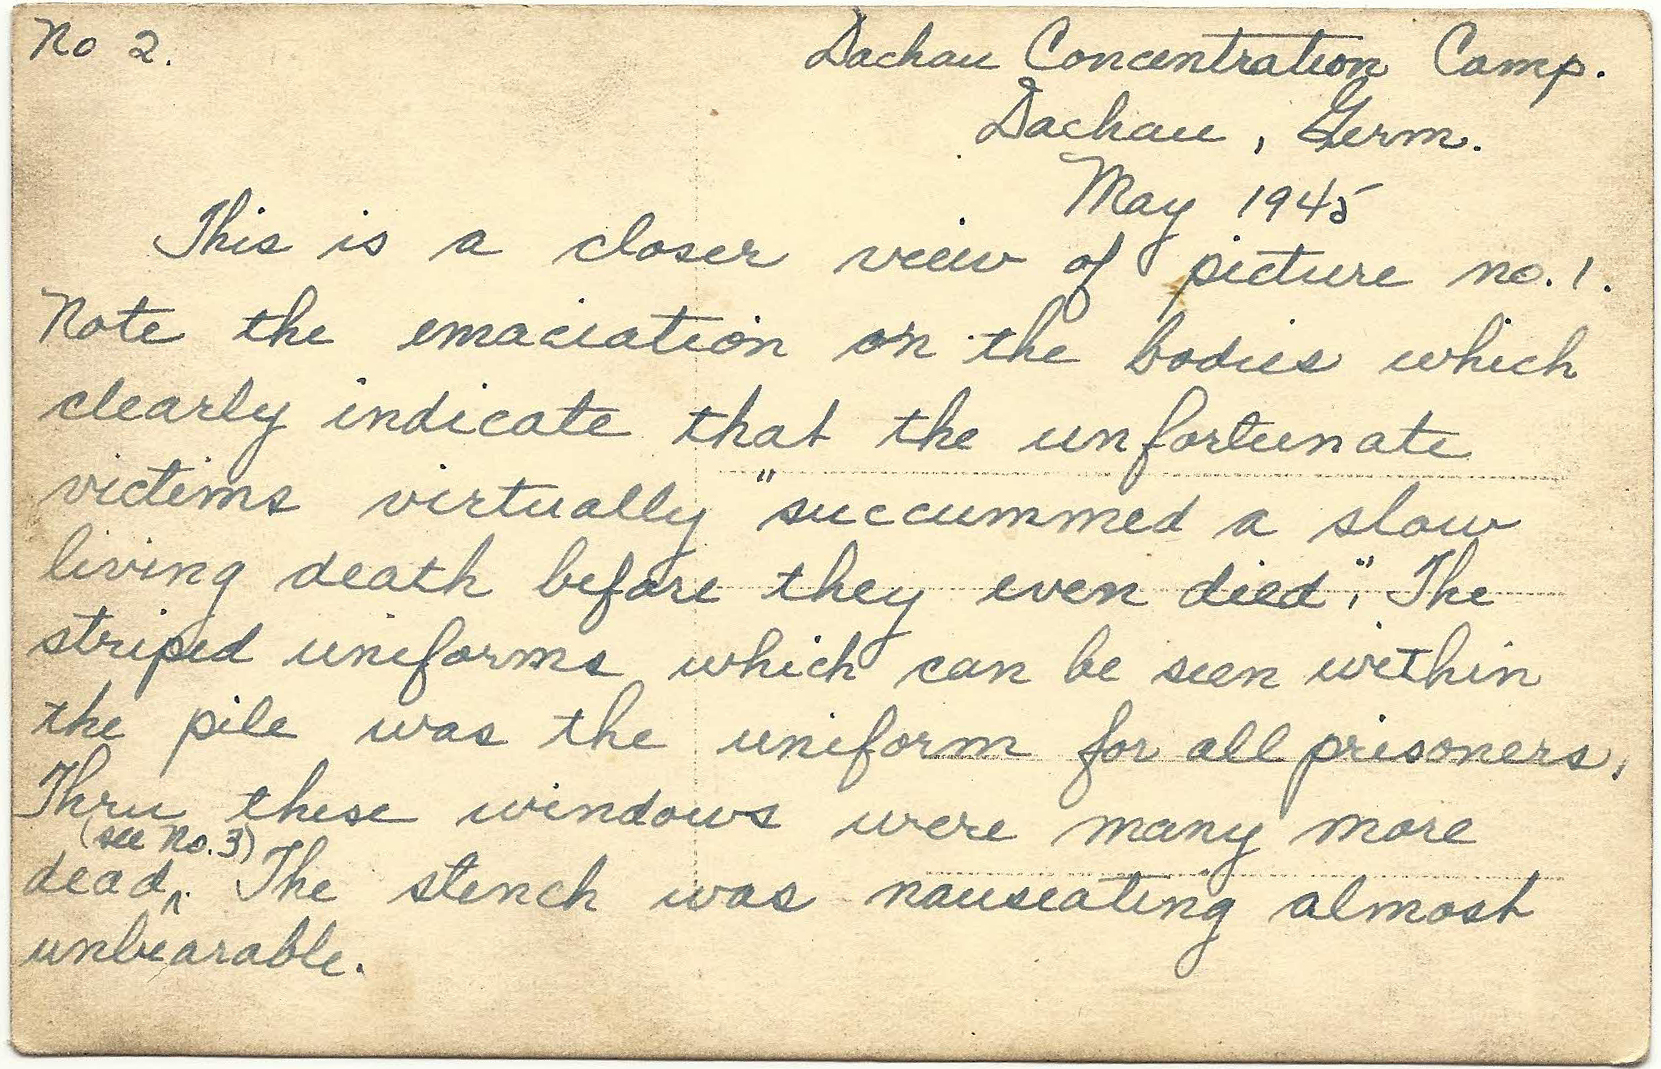 No 2.
Dachau Concentration Camp.
Dachau, Germ.
May 1945
This is a closer view of picture no. 1.
Note the emaciation on the bodies which
clearly indicate that the unfortunate
victims virtually "succummed a slow
living death before they even died". The
striped uniforms which can be seen within
the pile was the uniform for all prisoners.
Thru these windows were many more
(see No. 3)
dead^. The stench was nauseating almost
unbearable.